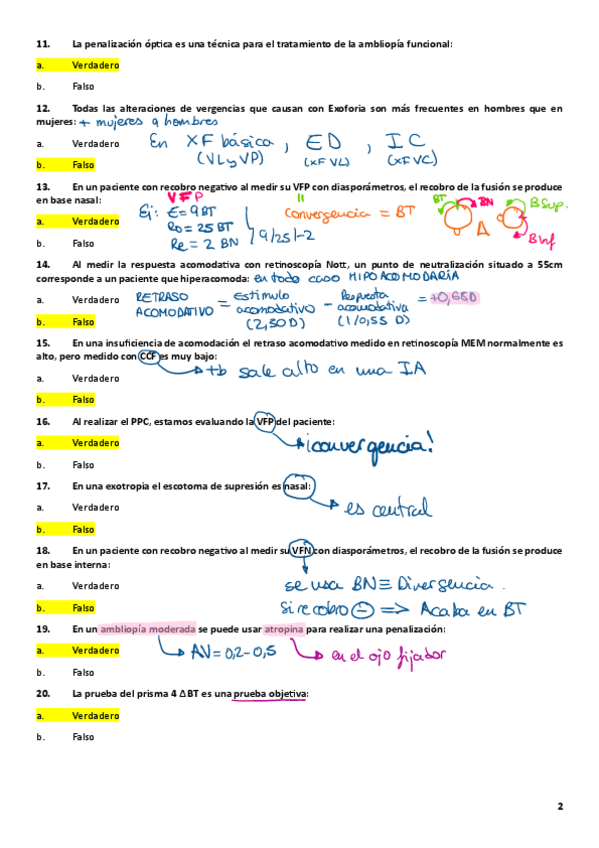 11. La penalización óptica es una técnica para el tratamiento de la ambliopía funcional:
a. Verdadero
b. Falso
12. Todas las alteraciones de vergencias que causan con Exoforia son más frecuentes en hombres que en
mujeres: + mujeres q hombres
a. Verdadero En XF básica, ED, IC
(VL y VP) (XF VL) (XF VC)
b. Falso
13. En un paciente con recobro negativo al medir su VFP con diasporámetros, el recobro de la fusión se produce
en base nasal: VFP
a. Verdadero Ej: E=9BT
Ro=25BT
Re=2BN
9/25/-2
Convergencia = BT
BT BN BSup.
Δ BInf
b. Falso
14. Al medir la respuesta acomodativa con retinoscopía Nott, un punto de neutralización situado a 55cm
corresponde a un paciente que hiperacomoda: en todo caso HIPOACOMODARÍA
a. Verdadero RETRASO ACOMODATIVO = Estímulo acomodativo (2,50D) - Respuesta acomodativa (1/0,55 D) = +0,68D
b. Falso
15. En una insuficiencia de acomodación el retraso acomodativo medido en retinoscopía MEM normalmente es
alto, pero medido con CCF es muy bajo:
tb sale alto en una IA
a. Verdadero
b. Falso
16. Al realizar el PPC, estamos evaluando la VFP del paciente:
a. Verdadero ¡convergencia!
b. Falso
17. En una exotropia el escotoma de supresión es nasal:
a. Verdadero es central
b. Falso
18. En un paciente con recobro negativo al medir su VFN con diasporámetros, el recobro de la fusión se produce
en base interna:
a. Verdadero se usa BN ≡ Divergencia.
b. Falso Si recobro ⊖ => Acaba en BT
19. En un ambliopía moderada se puede usar atropina para realizar una penalización:
a. Verdadero AV=0,2-0,5 en el ojo fijador
b. Falso
20. La prueba del prisma 4 Δ BT es una prueba objetiva:
a. Verdadero
b. Falso
2